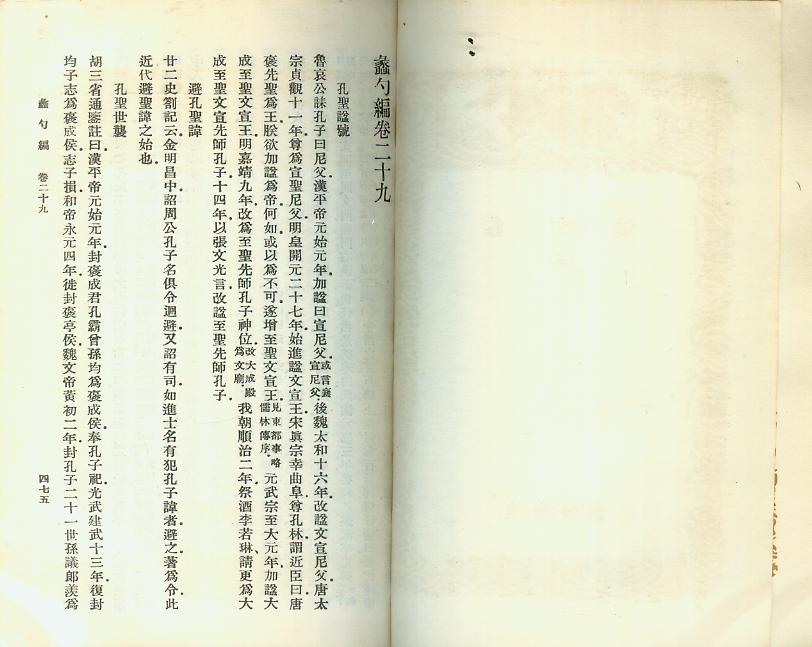 蠡勺編卷二十九
孔聖諡號
魯哀公誄孔子曰尼父．漢平帝元始元年．加諡曰宣尼父．或言褒宣尼父．後魏太和十六年．改諡文宣尼父．唐太
宗貞觀十一年．尊爲宣聖尼父．明皇開元二十七年．始進諡文宣王．宋眞宗幸曲阜．尊孔林．謂近臣曰．唐
褒先聖爲王．朕欲加諡爲帝．何如．或以爲不可．遂增至聖文宣王．見東都事略儒林傳序．元武宗至大元年．加諡大
成至聖文宣王．明嘉靖九年．改爲至聖先師孔子神位．改大成殿爲文廟．我朝順治二年．祭酒李若琳、請更爲大
成至聖文宣先師孔子．十四年．以張文光言．改諡至聖先師孔子．
避孔聖諱
廿二史劄記云．金明昌中．詔周公孔子名俱令迴避．又詔有司．如進士名有犯孔子諱者．避之．著爲令．此
近代避聖諱之始也．
孔聖世襲
胡三省通鑒註曰．漢平帝元始元年．封褒成君孔霸曾孫均爲褒成侯．奉孔子祀．光武建武十三年．復封
均子志爲褒成侯．志子損．和帝永元四年．徙封褒亭侯．魏文帝黃初二年．封孔子二十一世孫議郎羨爲
蠡勺編　卷二十九
四七五